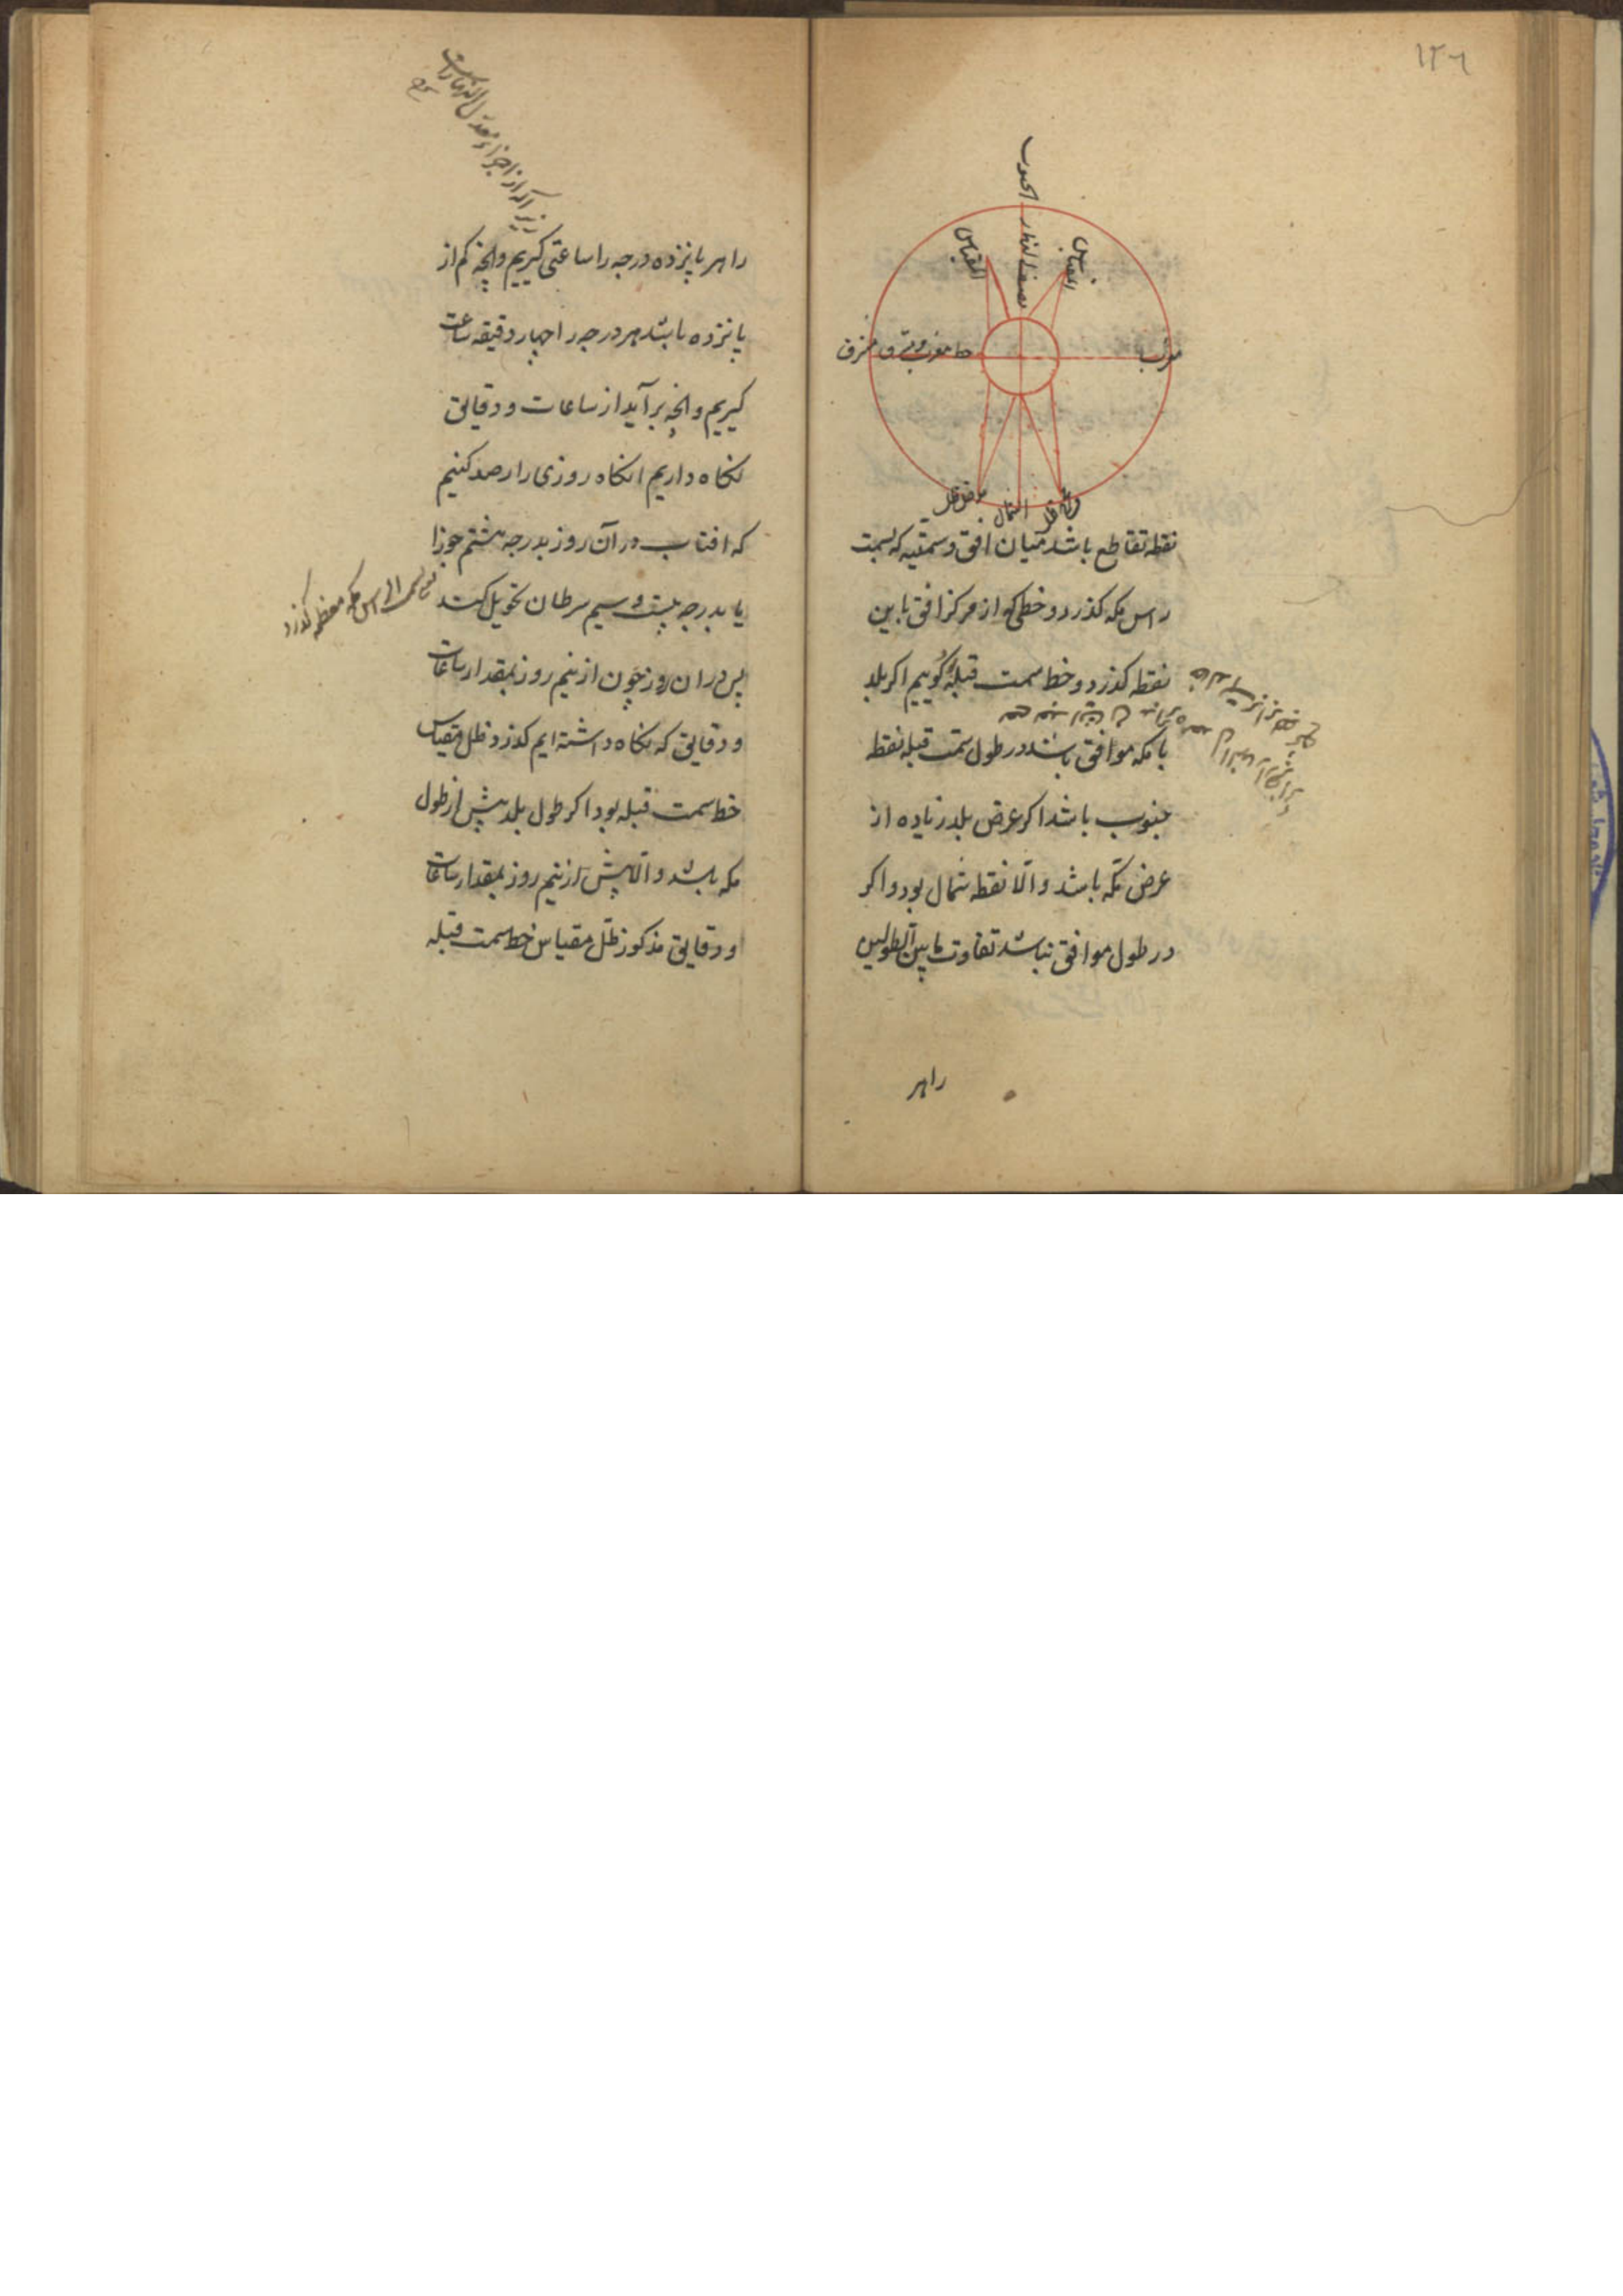 ١٢٦
الجنوب
نصف النهار
المقیاس
المقیاس
مغرب
خط مغرب و مشرق
مشرق
الشمال
نقطه تقاطع باشد میان افق و سمتیه که بسمت
راس مکه کذرد و خطی که از مرکز افق باین
نقطه کذرد و خط سمت قبله کوییم اکر بلد
با مکه موافق باشد در طول سمت قبله نقطه
جنوب باشد اکر عرض بلد زیاده از
عرض مکه باشد والا نقطه شمال بود و اکر
در طول موافق نباشد تفاوت ما بین الطولین
راهر
را هر پانزده درجه را ساعتی کیریم و آنچه کم از
پانزده باشد هر درجه را چهار دقیقه ساعت
کیریم و آنچه برآید از ساعات و دقایق
نکاه داریم انکاه روزی را رصد کنیم
که افتاب در آن روز بدرجه هشتم جوزا
یا بدرجه بیست و سیم سرطان تحویل کند
بسمت الراس مکه معظمه کذرد
پس در ان روز چون از نیم روز بمقدار ساعات
و دقایق که نکاه داشته ایم کذرد ظل مقیاس
خط سمت قبله بود اکر طول بلد بیش از طول
مکه باشد والا پیش از نیم روز بمقدار ساعات
و دقایق مذکور ظل مقیاس خط سمت قبله